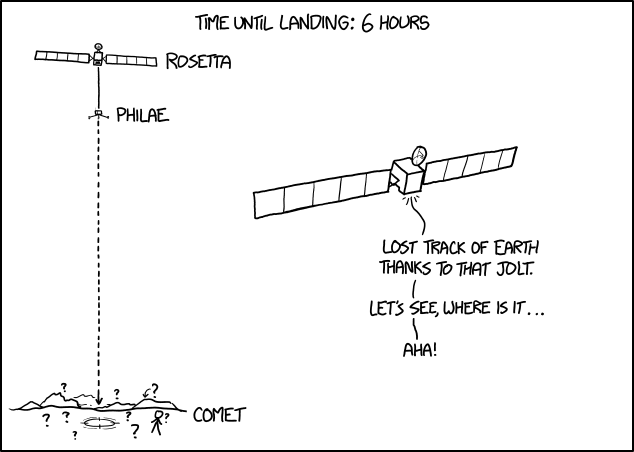 TIME UNTIL LANDING: 6 HOURS
ROSETTA
PHILAE
LOST TRACK OF EARTH
THANKS TO THAT JOLT.
LET'S SEE, WHERE IS IT...
AHA!
? ? ?
? ? ? ?
? ?
COMET